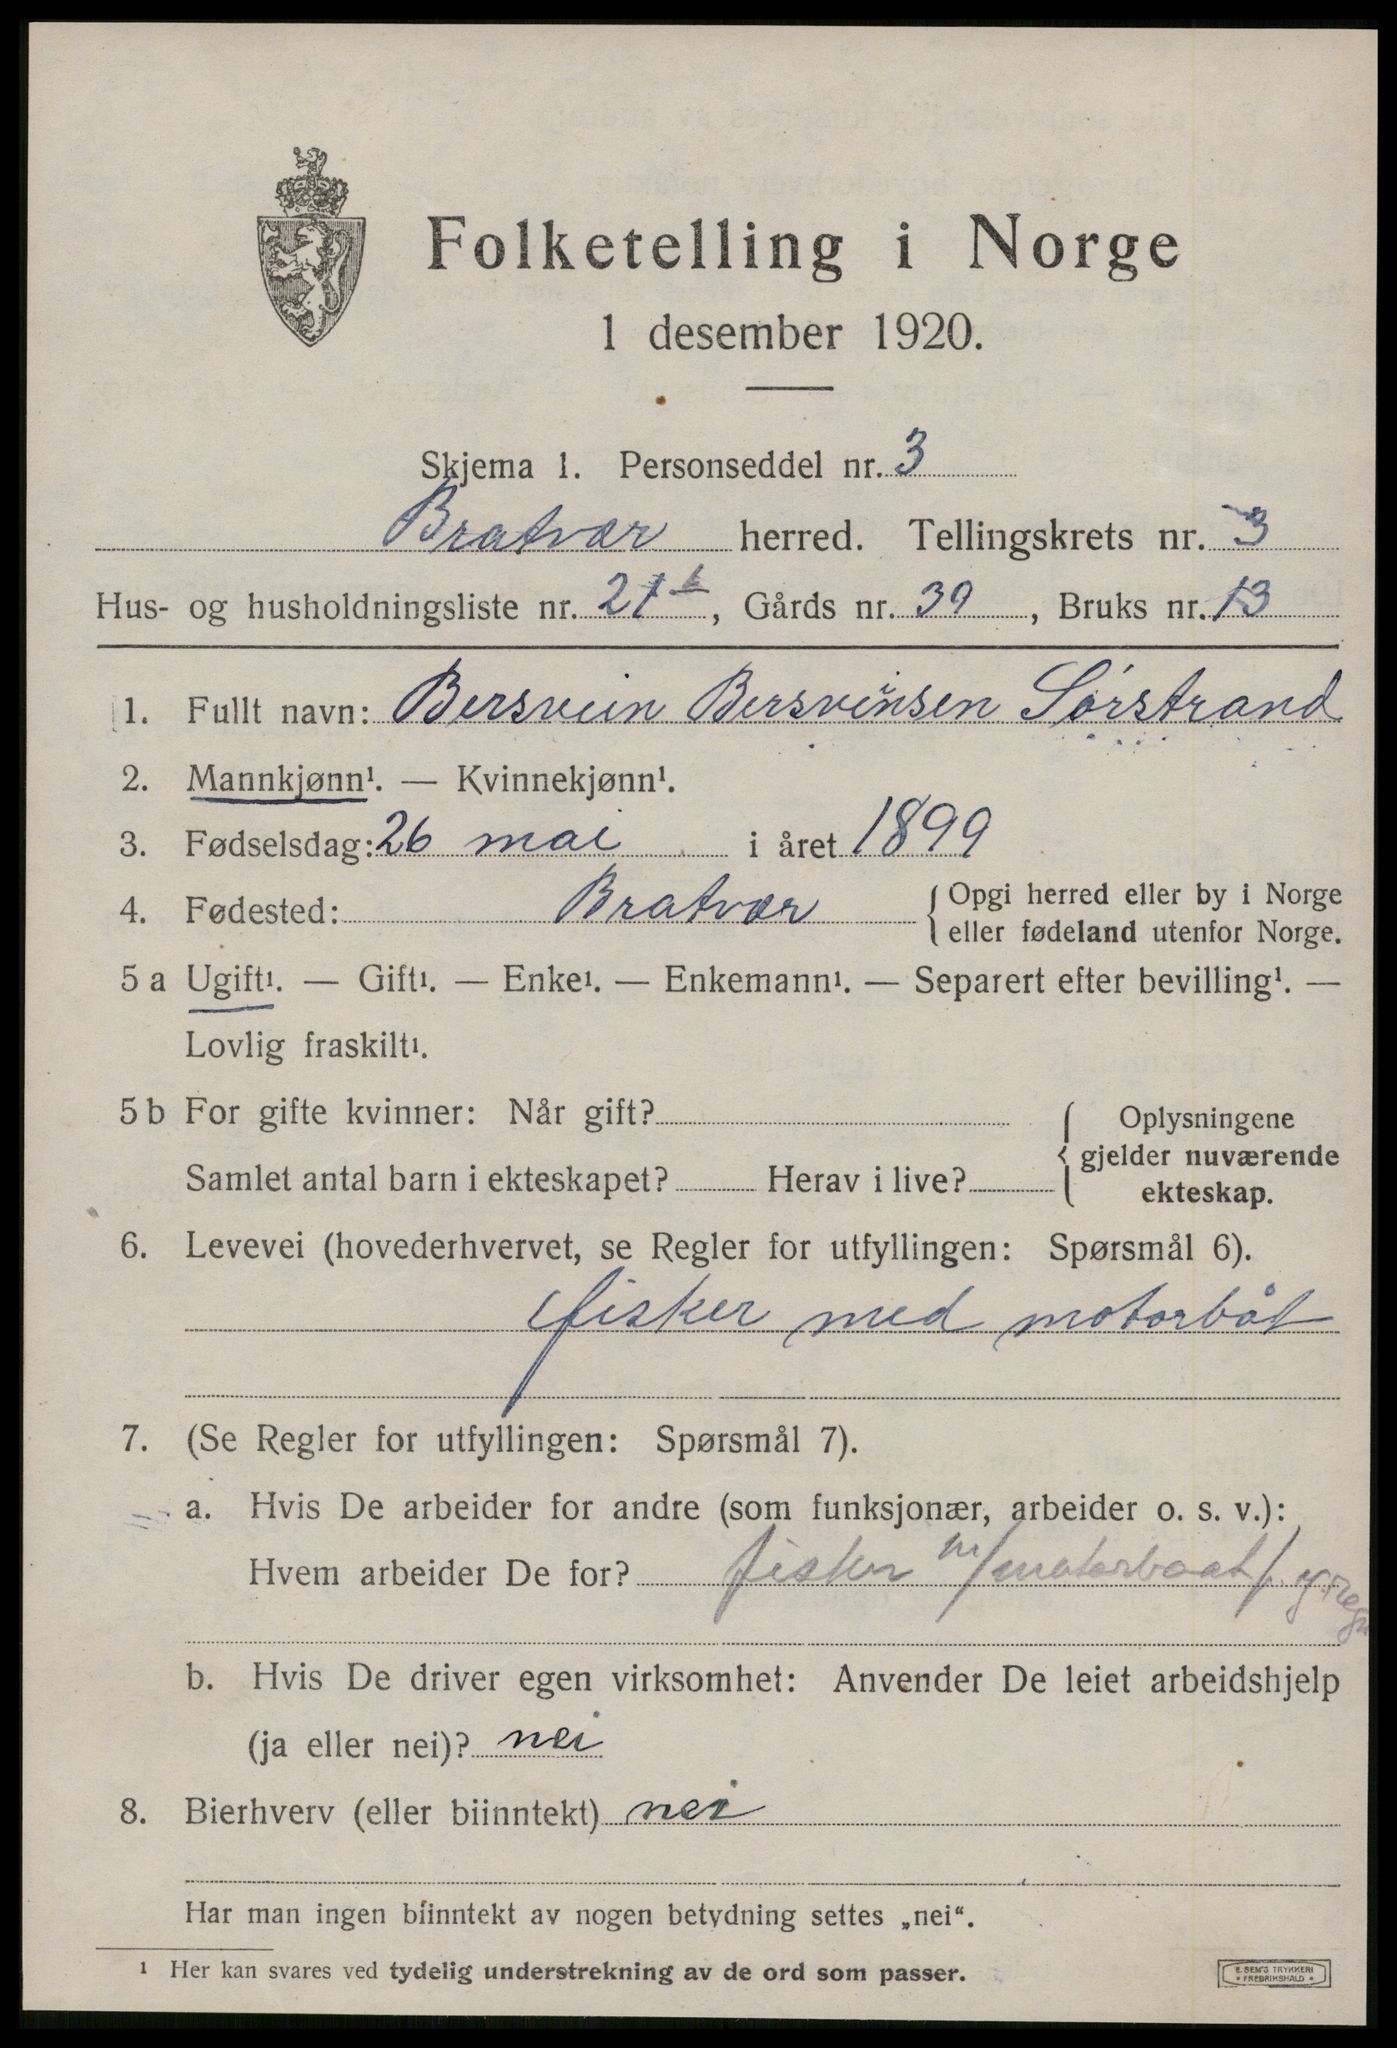 Folketelling i Norge
1 desember 1920.
Skjema 1. Personseddel nr. 3
Bratvær herred. Tellingskrets nr. 3
Hus- og husholdningsliste nr. 21 b, Gårds nr. 39, Bruks nr. 13
1. Fullt navn: Bersvein Bersvensen Sørstrand
2. Mannkjønn¹. — Kvinnekjønn¹.
3. Fødselsdag: 26 mai i året 1899
4. Fødested: Bratvær { Opgi herred eller by i Norge
eller fødeland utenfor Norge.
5 a Ugift¹. — Gift¹. — Enke¹. — Enkemann¹. — Separert efter bevilling¹. —
Lovlig fraskilt¹.
5 b For gifte kvinner: Når gift? { Oplysningene
gjelder nuværende
Samlet antal barn i ekteskapet? Herav i live?
ekteskap.
6. Levevei (hovederhvervet, se Regler for utfyllingen: Spørsmål 6).
fisker med motorbåt
7. (Se Regler for utfyllingen: Spørsmål 7).
a. Hvis De arbeider for andre (som funksjonær, arbeider o. s. v.):
Hvem arbeider De for? fisker m/motorbaat f.
b. Hvis De driver egen virksomhet: Anvender De leiet arbeidshjelp
(ja eller nei)? nei
8. Bierhverv (eller biinntekt) nei
Har man ingen biinntekt av nogen betydning settes „nei“.
¹ Her kan svares ved tydelig understrekning av de ord som passer.
E. SEM'S TRYKKERI
• FREDRIKSHALD •